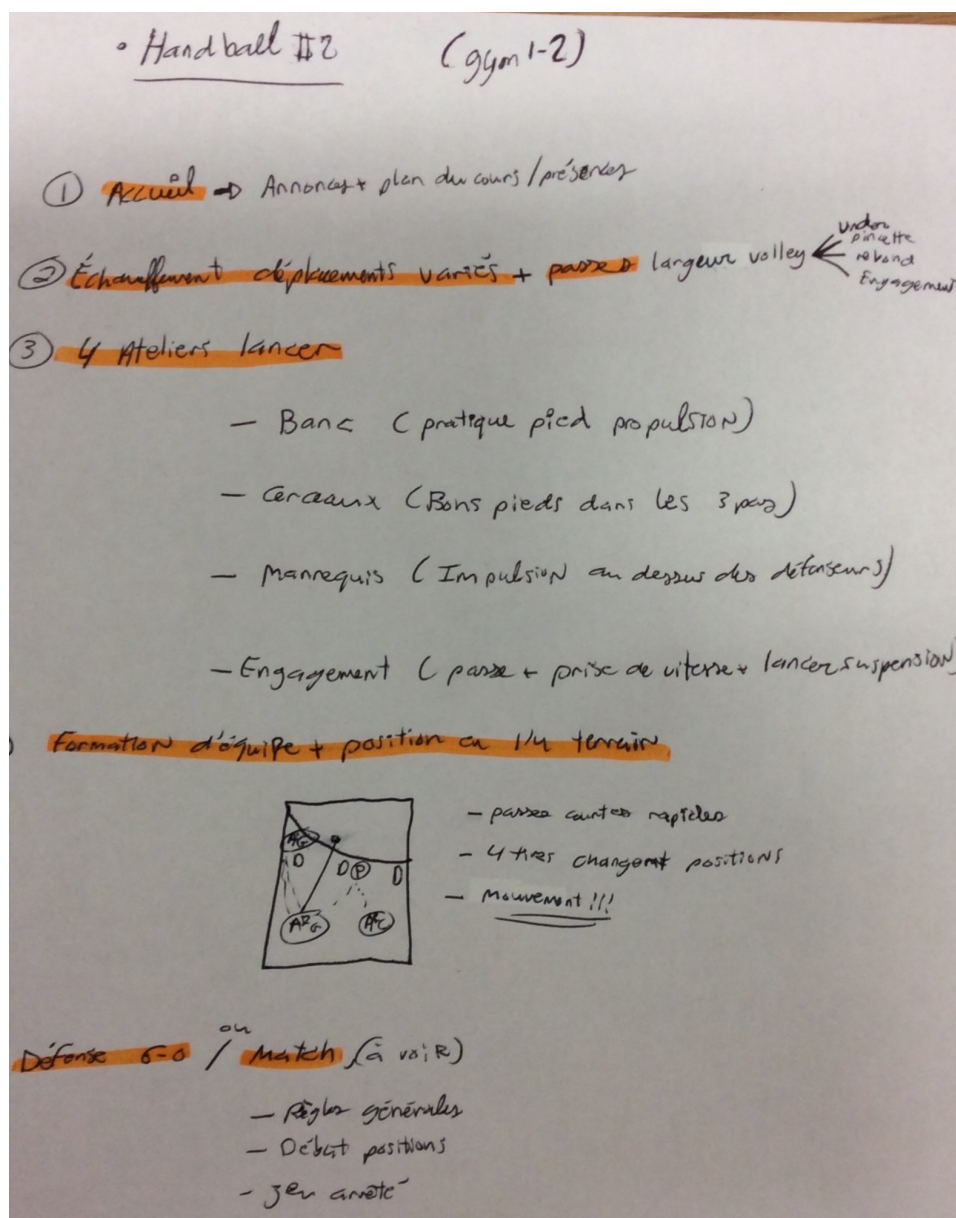 • Handball #2 (gym 1-2)
① Accueil → Annonces + plan du cours / présences
② Échauffement déplacements variés + passes largeur volley
under
pincette
rebond
Engagement
③ 4 Ateliers lancer
- Banc (pratique pied propulsION)
- Cerceaux (Bons pieds dans les 3 pas)
- Mannequis (ImpulsioN au dessus des défenseurs)
- Engagement (passe + prise de vitesse + lancer suspension)
FormatioN d'équipe + position en 1/4 terrain
- passes courtes rapides
- 4 tires changent positions
- Mouvement !!!
D D P D
ARG
Défense 6-0 / ou Match (à voiR)
- Règles générales
- Début positions
- Jeu arrêté